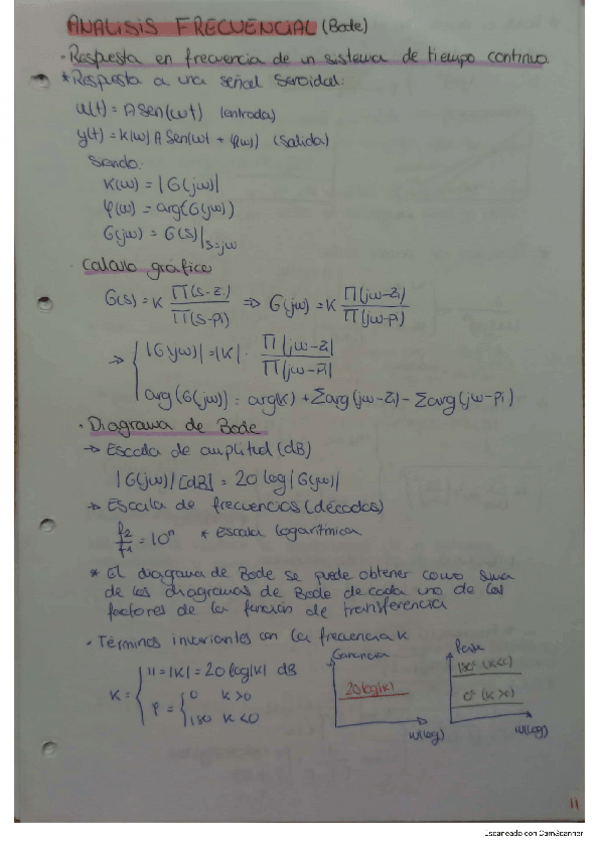 ANALISIS FRECUENCIAL (Bode)
· Respuesta en frecuencia de un sistema de tiempo continuo
* Respuesta a una señal senoidal:
u(t) = A sen(wt) (entrada)
y(t) = K(w) A sen(wt + φ(w)) (Salida)
Siendo:
K(w) = |G(jw)|
φ(w) = arg(G(jw))
G(jw) = G(s)|s=jw
· Calculo gráfico
G(s) = K ∏(s-zi)/∏(s-pi) ⇒ G(jw) = K ∏(jw-zi)/∏(jw-pi)
→ { |G(jw)| = |K| · ∏|jw-zi|/∏|jw-pi|
arg(G(jw)) = arg(K) + Σarg(jw-zi) - Σarg(jw-pi)
· Diagrama de Bode
→ Escala de amplitud (dB)
|G(jw)| [dB] = 20 log|G(jw)|
→ Escala de frecuencias (décadas)
f2/f1 = 10ⁿ * Escala logarítmica
* El diagrama de Bode se puede obtener como suma
de los diagramas de Bode de cada uno de los
factores de la función de transferencia
· Términos invariantes con la frecuencia K
K = { || = |K| = 20 log|K| dB
φ = { 0 K>0
180 K<0
Ganancia
20 log|K|
w(log)
Fase
180° (K<0)
0° (K>0)
w(log)
11
Escaneado con CamScanner